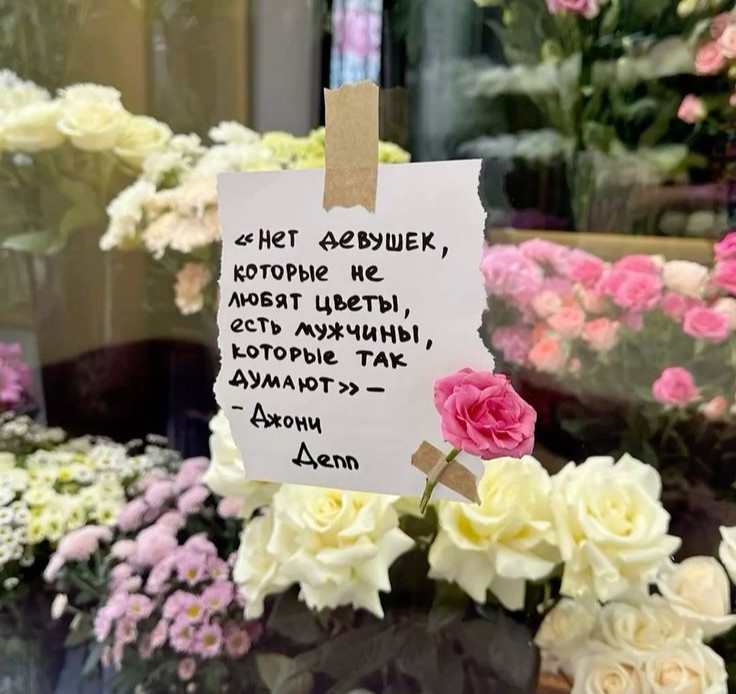 «Нет девушек,
которые не
любят цветы,
есть мужчины,
которые так
думают» –
- Джони
Депп